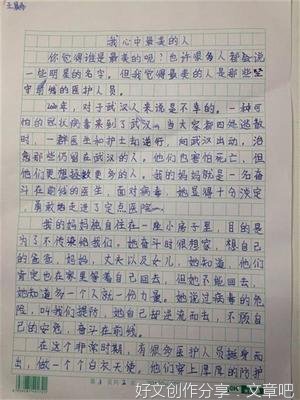 我心中最美的人
你觉得谁是最美的呢？也许很多人都会说
一些明星的名字。但我觉得最美的人是那些坚
守前线的医护人员。
2020年，对于武汉人来说是不幸的。一种可
怕的冠状病毒来到了武汉。当大家都四处逃散
时，一群医生和护士却逆行，向武汉出动，治
愈那些仍留在武汉的人。他们也害怕死亡，但
他们更想拯救更多的人。我的妈妈就是一名奋
斗在前线的医生，面对病毒，她显得十分淡定
，勇敢地走进了定点医院。
我的妈妈独自住在一座小房子里，目的是
为了不传染给我们。她奋斗时很想家，想自己
的爸爸，妈妈，丈夫以及女儿，她知道，他们
肯定也在家里等着自己回去，但她不能回去，
她知道多一个人就一份力量。她说过病毒的危
险，叫我们提防，她自己却逆流而去，不顾自
己的安危，奋斗在前线。
在这个非常时期，有很多医护人员挺身而
出，做一个个白衣天使，他们穿上厚厚的防护
好文创作分享：文章吧